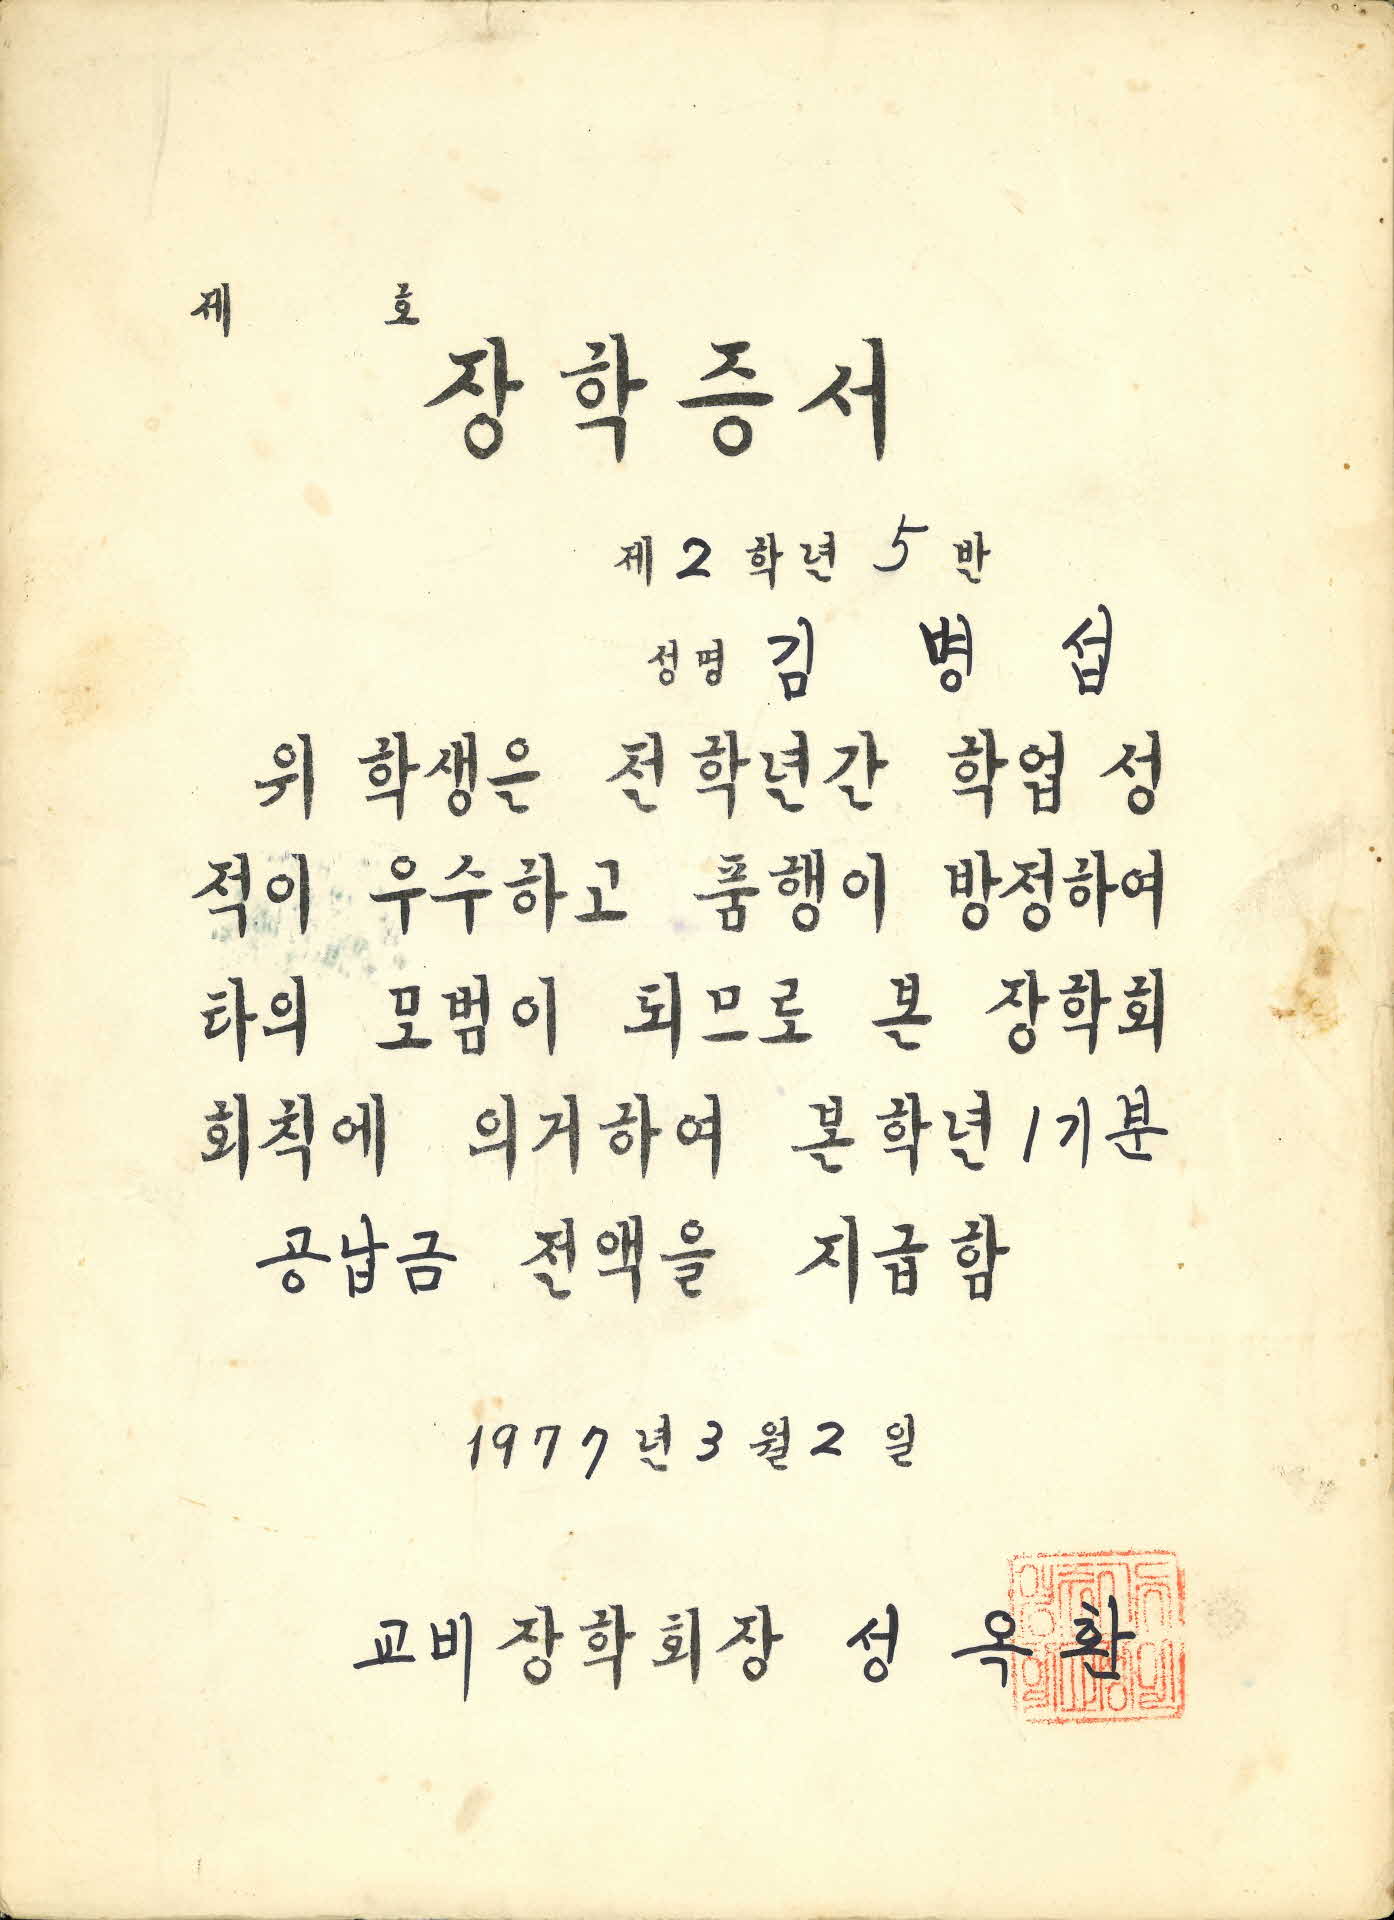 제 호
장학증서
제 2 학년 5 반
성명 김 병 섭
위 학생은 전학년간 학업 성
적이 우수하고 품행이 방정하여
타의 모범이 되므로 본 장학회
회칙에 의거하여 본학년 1기분
공납금 전액을 지급함
1977년 3월 2일
교비 장학회장 성 옥 환